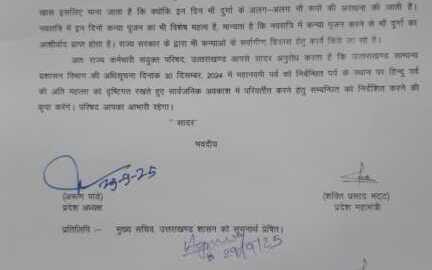 खास इसलिए माना जाता है कि क्योंकि इन दिन माँ दुर्गा के अलग–अलग नौ रूपों की अराधना की जाती है।
नवरात्रि में इन दिनो कन्या पूजन का भी विशेष महत्व है, मान्यता है कि नवरात्रि में कन्या पूजन करने से माँ दुर्गा का
आशीर्वाद प्राप्त होता है। राज्य सरकार के द्वारा भी कन्याओं के सर्वांगीण विकास हेतु कार्य किये जा रहे है।
अतः राज्य कर्मचारी संयुक्त परिषद, उत्तराखण्ड आपसे सादर अनुरोध करता है कि उत्तराखण्ड सामान्य
प्रशासन विभाग की अधिसूचना दिनांक 30 दिसम्बर, 2024 में महानवमी पर्व को निर्बन्धित पर्व के स्थान पर हिन्दू पर्व
की अति महत्ता को दृष्टिगत रखते हुए सार्वजनिक अवकाश में परिवर्तित करने हेतु सम्बन्धित को निर्देशित करने की
कृपा करेंगे। परिषद आपका आभारी रहेगा।
"सादर"
भवदीय
29-9-25
(अरूण पांडे)
प्रदेश अध्यक्ष
(शक्ति प्रसाद भट्ट)
प्रदेश महामंत्री
प्रतिलिपि :– मुख्य सचिव, उत्तराखण्ड शासन को सूचनार्थ प्रेषित।
29/9/25